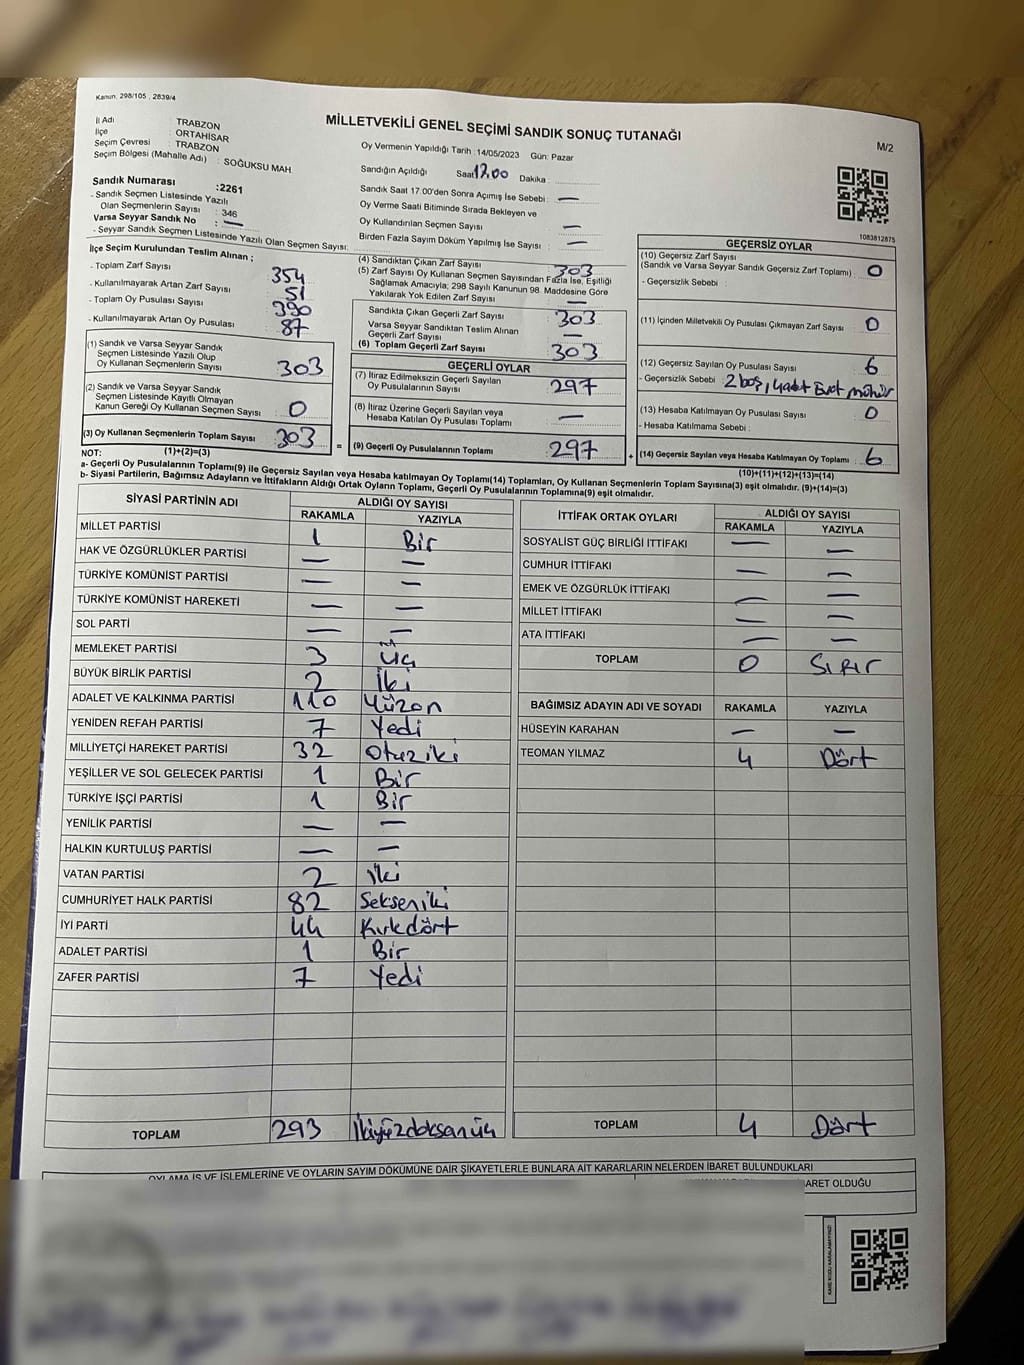 Kanun: 298/105 , 2839/4
MİLLETVEKİLİ GENEL SEÇİMİ SANDIK SONUÇ TUTANAĞI
M/2
İl Adı : TRABZON
İlçe : ORTAHİSAR
Seçim Çevresi : TRABZON
Seçim Bölgesi (Mahalle Adı) : SOĞUKSU MAH
Sandık Numarası :2261
- Sandık Seçmen Listesinde Yazılı
Olan Seçmenlerin Sayısı : 346
Varsa Seyyar Sandık No : —
- Seyyar Sandık Seçmen Listesinde Yazılı Olan Seçmen Sayısı:
Oy Vermenin Yapıldığı Tarih :14/05/2023 Gün: Pazar
Sandığın Açıldığı Saat 17.00 Dakika :
Sandık Saat 17.00'den Sonra Açımış İse Sebebi : —
Oy Verme Saati Bitiminde Sırada Bekleyen ve
Oy Kullandırılan Seçmen Sayısı —
Birden Fazla Sayım Döküm Yapılmış İse Sayısı : —
1083812875
İlçe Seçim Kurulundan Teslim Alınan ;
- Toplam Zarf Sayısı 354
- Kullanılmayarak Artan Zarf Sayısı 51
- Toplam Oy Pusulası Sayısı 390
- Kullanılmayarak Artan Oy Pusulası 87
(1) Sandık ve Varsa Seyyar Sandık
Seçmen Listesinde Yazılı Olup
Oy Kullanan Seçmenlerin Sayısı 303
(2) Sandık ve Varsa Seyyar Sandık
Seçmen Listesinde Kayıtlı Olmayan
Kanun Gereği Oy Kullanan Seçmen Sayısı 0
(3) Oy Kullanan Seçmenlerin Toplam Sayısı 303 =
(4) Sandıktan Çıkan Zarf Sayısı 303
(5) Zarf Sayısı Oy Kullanan Seçmen Sayısından Fazla İse, Eşitliği
Sağlamak Amacıyla; 298 Sayılı Kanunun 98. Maddesine Göre
Yakılarak Yok Edilen Zarf Sayısı —
Sandıkta Çıkan Geçerli Zarf Sayısı 303
Varsa Seyyar Sandıktan Teslim Alınan
Geçerli Zarf Sayısı —
(6) Toplam Geçerli Zarf Sayısı 303
GEÇERLİ OYLAR
(7) İtiraz Edilmeksizin Geçerli Sayılan
Oy Pusulalarının Sayısı 297
(8) İtiraz Üzerine Geçerli Sayılan veya
Hesaba Katılan Oy Pusulası Toplamı —
(9) Geçerli Oy Pusulalarının Toplamı 297 +
GEÇERSİZ OYLAR
(10) Geçersiz Zarf Sayısı
(Sandık ve Varsa Seyyar Sandık Geçersiz Zarf Toplamı) 0
- Geçersizlik Sebebi :
(11) İçinden Milletvekili Oy Pusulası Çıkmayan Zarf Sayısı 0
(12) Geçersiz Sayılan Oy Pusulası Sayısı 6
- Geçersizlik Sebebi 2 boş, 4 adet Evet mühür
(13) Hesaba Katılmayan Oy Pusulası Sayısı 0
- Hesaba Katılmama Sebebi :
(14) Geçersiz Sayılan veya Hesaba Katılmayan Oy Toplamı 6
NOT: (1)+(2)=(3)
(10)+(11)+(12)+(13)=(14)
a- Geçerli Oy Pusulalarının Toplamı(9) ile Geçersiz Sayılan veya Hesaba katılmayan Oy Toplamı(14) Toplamları, Oy Kullanan Seçmenlerin Toplam Sayısına(3) eşit olmalıdır. (9)+(14)=(3)
b- Siyasi Partilerin, Bağımsız Adayların ve İttifakların Aldığı Ortak Oyların Toplamı, Geçerli Oy Pusulalarının Toplamına(9) eşit olmalıdır.
SİYASİ PARTİNİN ADI ALDIĞI OY SAYISI
RAKAMLA YAZIYLA
MİLLET PARTİSİ 1 Bir
HAK VE ÖZGÜRLÜKLER PARTİSİ — —
TÜRKİYE KOMÜNİST PARTİSİ — —
TÜRKİYE KOMÜNİST HAREKETİ — —
SOL PARTİ — —
MEMLEKET PARTİSİ 3 Üç
BÜYÜK BİRLİK PARTİSİ 2 İki
ADALET VE KALKINMA PARTİSİ 110 Yüzon
YENİDEN REFAH PARTİSİ 7 Yedi
MİLLİYETÇİ HAREKET PARTİSİ 32 Otuziki
YEŞİLLER VE SOL GELECEK PARTİSİ 1 Bir
TÜRKİYE İŞÇİ PARTİSİ 1 Bir
YENİLİK PARTİSİ — —
HALKIN KURTULUŞ PARTİSİ — —
VATAN PARTİSİ 2 İki
CUMHURİYET HALK PARTİSİ 82 Sekseniki
İYİ PARTİ 44 Kırkdört
ADALET PARTİSİ 1 Bir
ZAFER PARTİSİ 7 Yedi
TOPLAM 293 İkiyüzdoksanüç
İTTİFAK ORTAK OYLARI ALDIĞI OY SAYISI
RAKAMLA YAZIYLA
SOSYALİST GÜÇ BİRLİĞİ İTTİFAKI — —
CUMHUR İTTİFAKI — —
EMEK VE ÖZGÜRLÜK İTTİFAKI — —
MİLLET İTTİFAKI — —
ATA İTTİFAKI — —
TOPLAM 0 Sıfır
BAĞIMSIZ ADAYIN ADI VE SOYADI RAKAMLA YAZIYLA
HÜSEYİN KARAHAN — —
TEOMAN YILMAZ 4 Dört
TOPLAM 4 Dört
OYLAMA İŞ VE İŞLEMLERİNE VE OYLARIN SAYIM DÖKÜMÜNE DAİR ŞİKAYETLERLE BUNLARA AİT KARARLARIN NELERDEN İBARET BULUNDUKLARI
İBARET OLDUĞU
KARE KODU KARALAMAYINIZ!